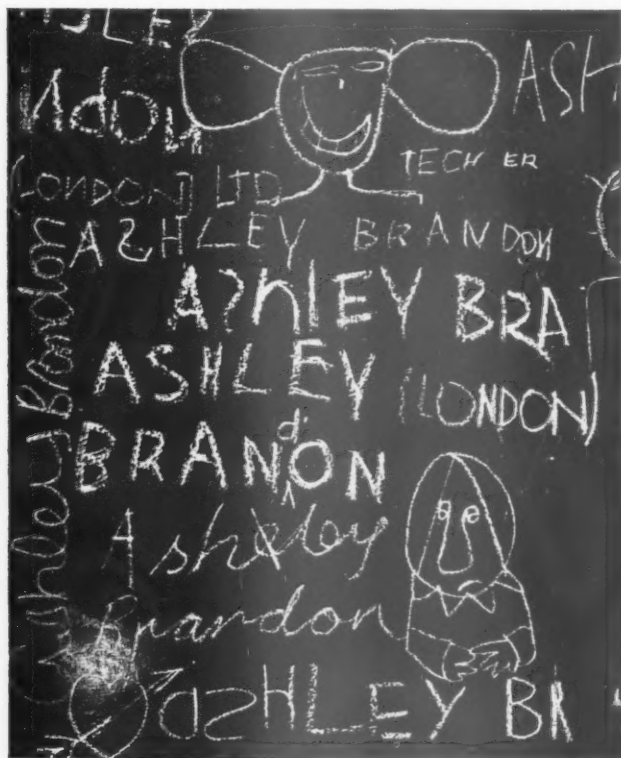 ASHLEY
ASH
ndon
TECHER
(LONDON) LTD
ASHLEY BRANDON
AShlEY BRA
ASHLEY (LONDON)
BRANdON
Ashley
Brandon
ASHLEY BR
Ashley Brandon